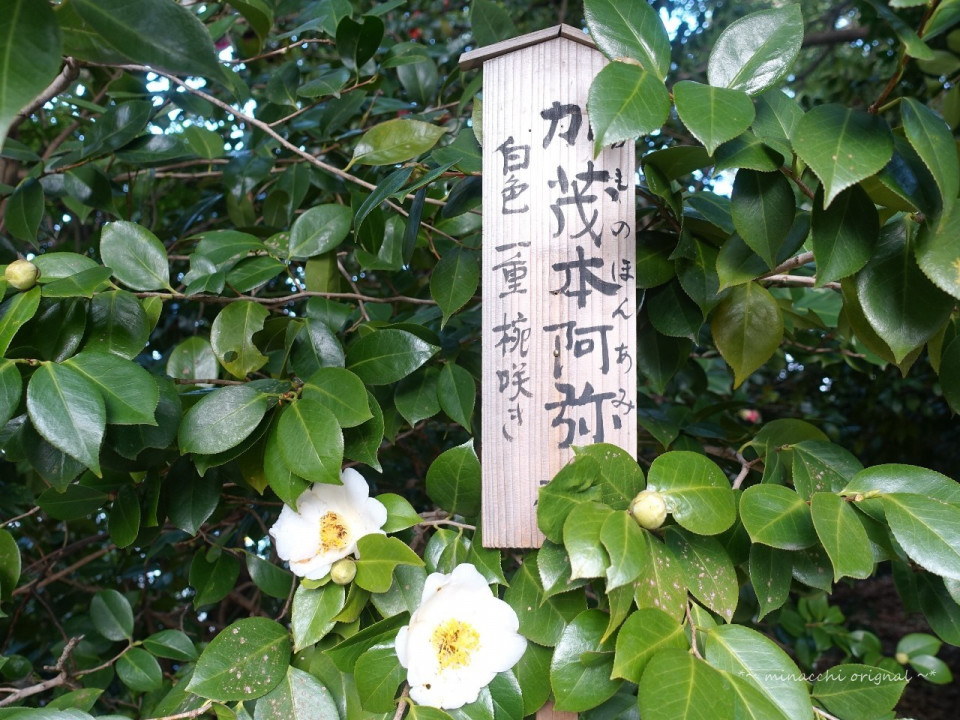 加茂本阿弥
ものほんあみ
白色 一重 椀咲き
~* minacchi orignal ~*